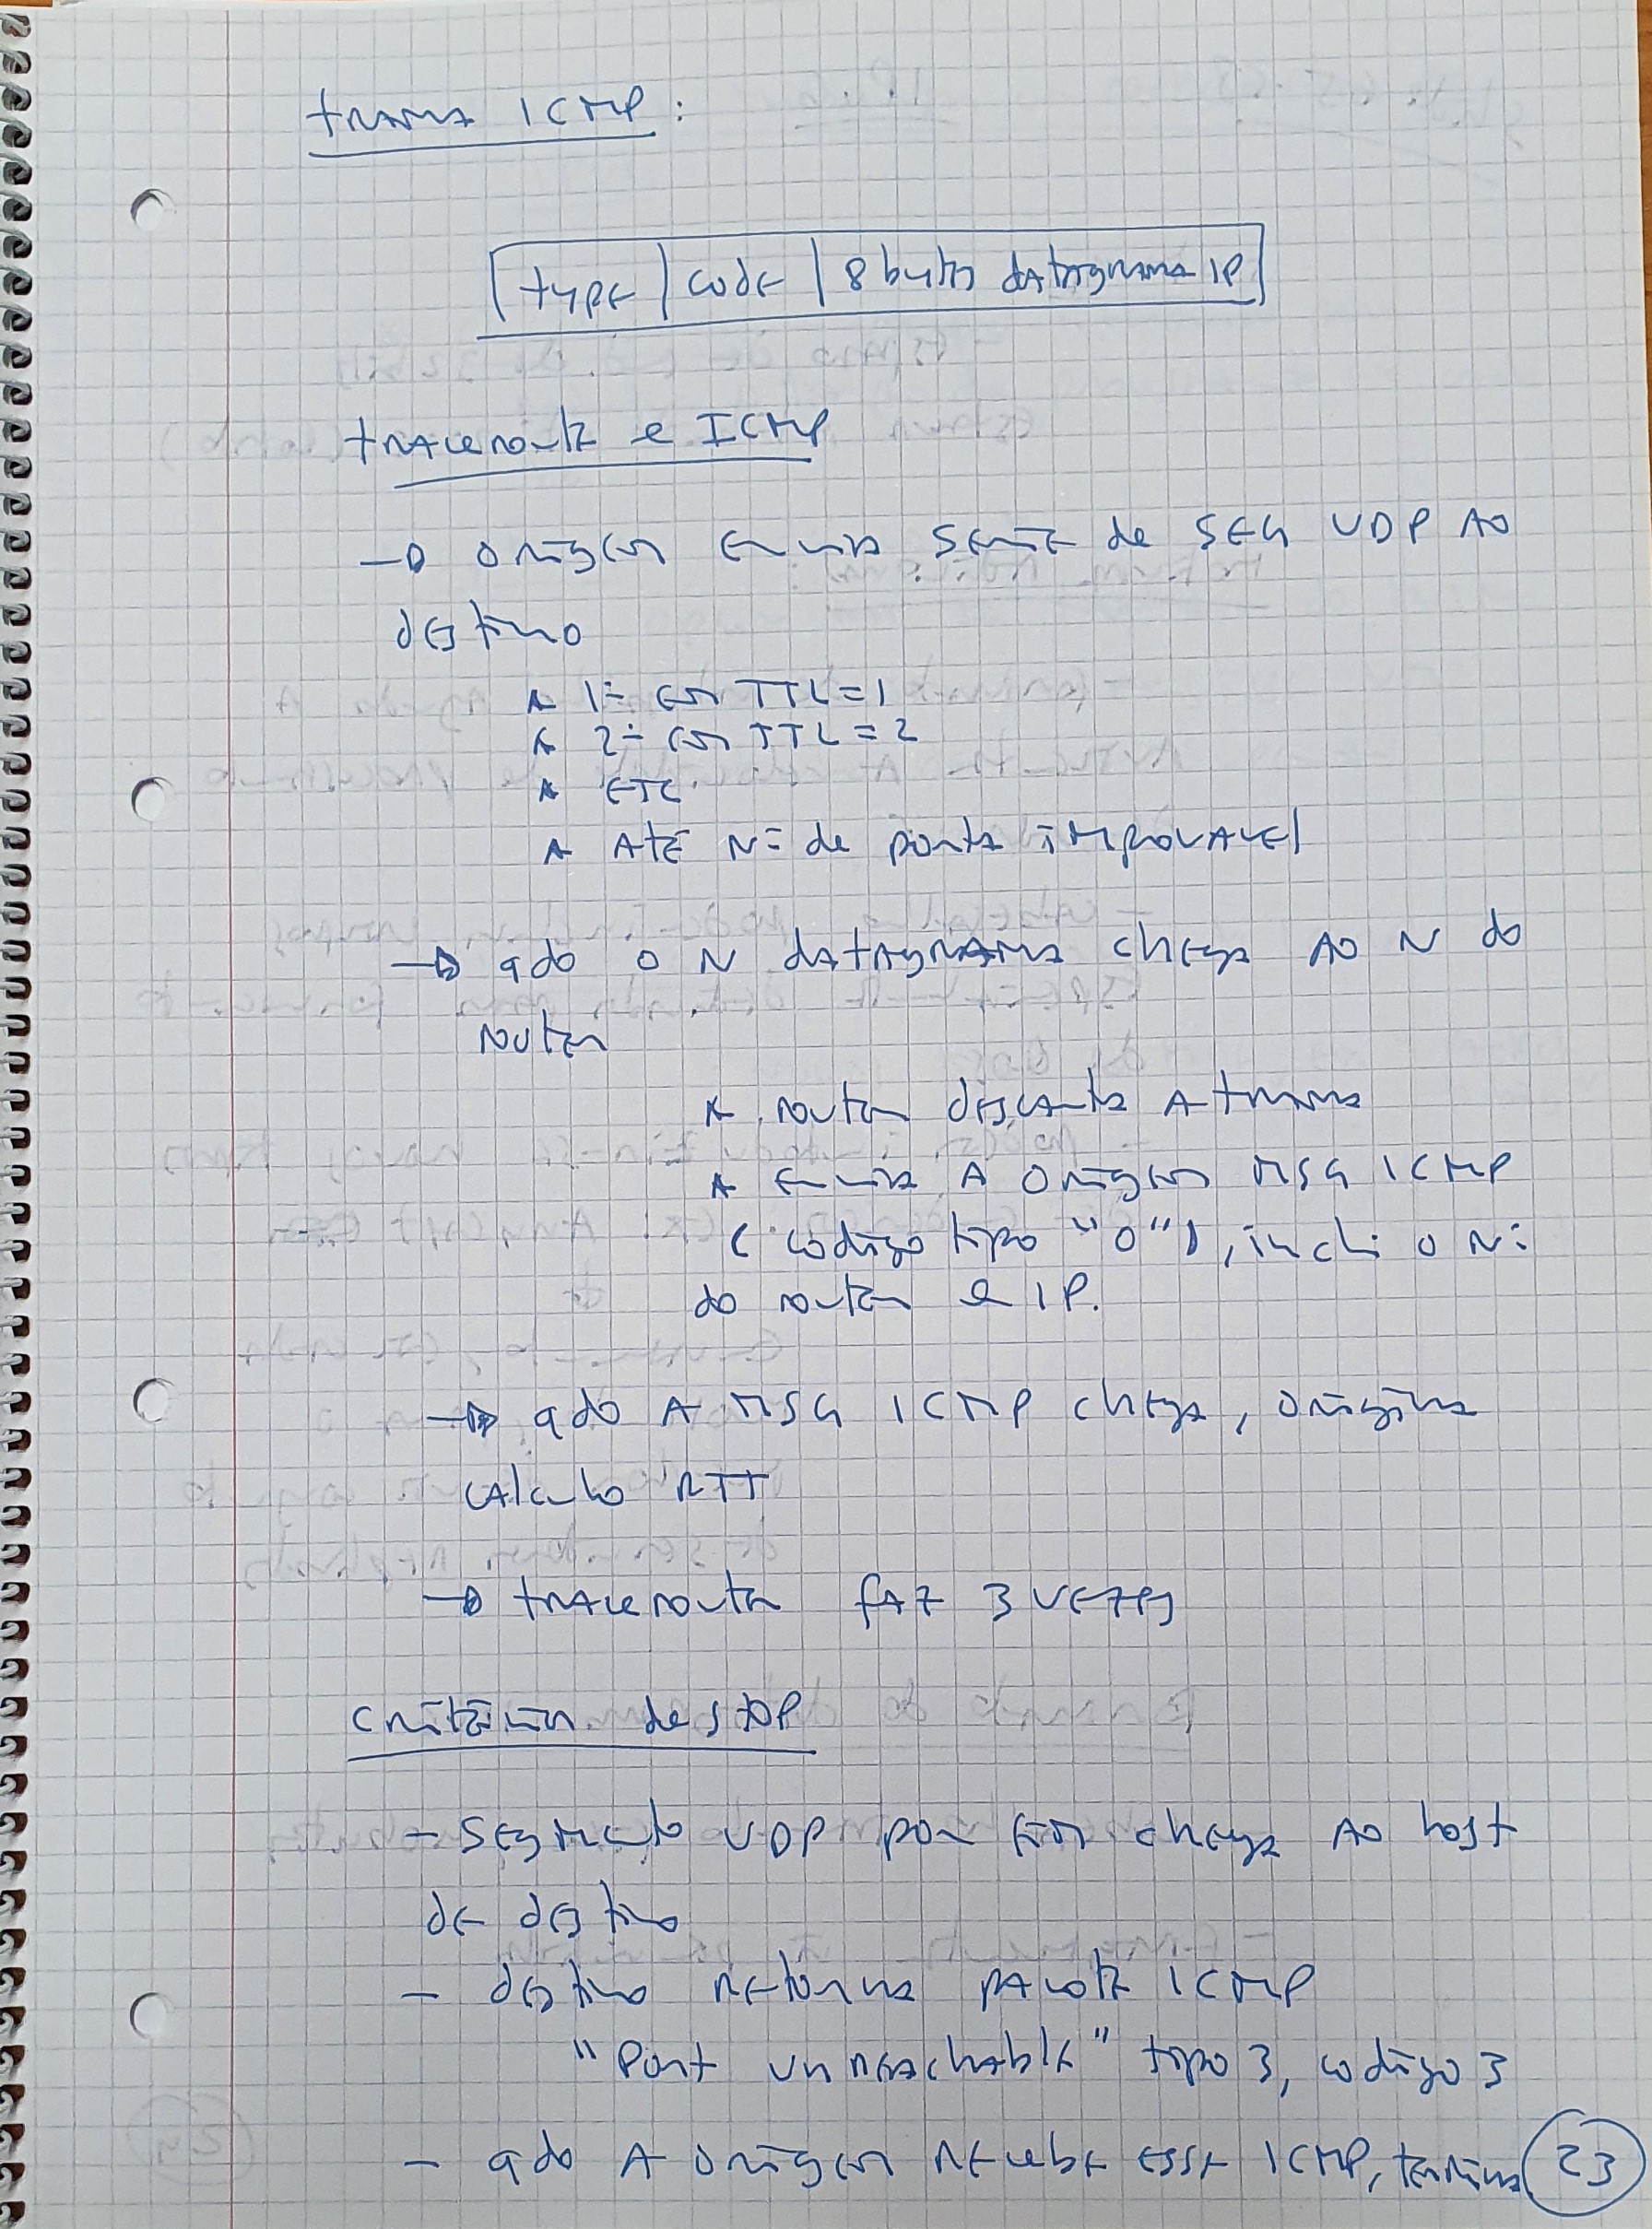 trama ICMP:
type | code | 8 bytes datagrama IP
traceroute e ICMP
→ origem envia série de SEG UDP AO
destino
1º com TTL=1
2º com TTL=2
ETC
ATÉ Nº de porta improvavel
→ qdo o N datagrama chega AO N do
router
router descarta A trama
envia A origem MSG ICMP
(codigo tipo "0"), inclui o Nº
do router e IP.
→ qdo A MSG ICMP chega, origina
calculo RTT
→ traceroute faz 3 vezes
critério de stop
- Segmento UDP por fim chega AO host
de destino
- destino retorna pacote ICMP
"Port unreachable" tipo 3, codigo 3
- qdo A origem recebe esse ICMP, termina
23